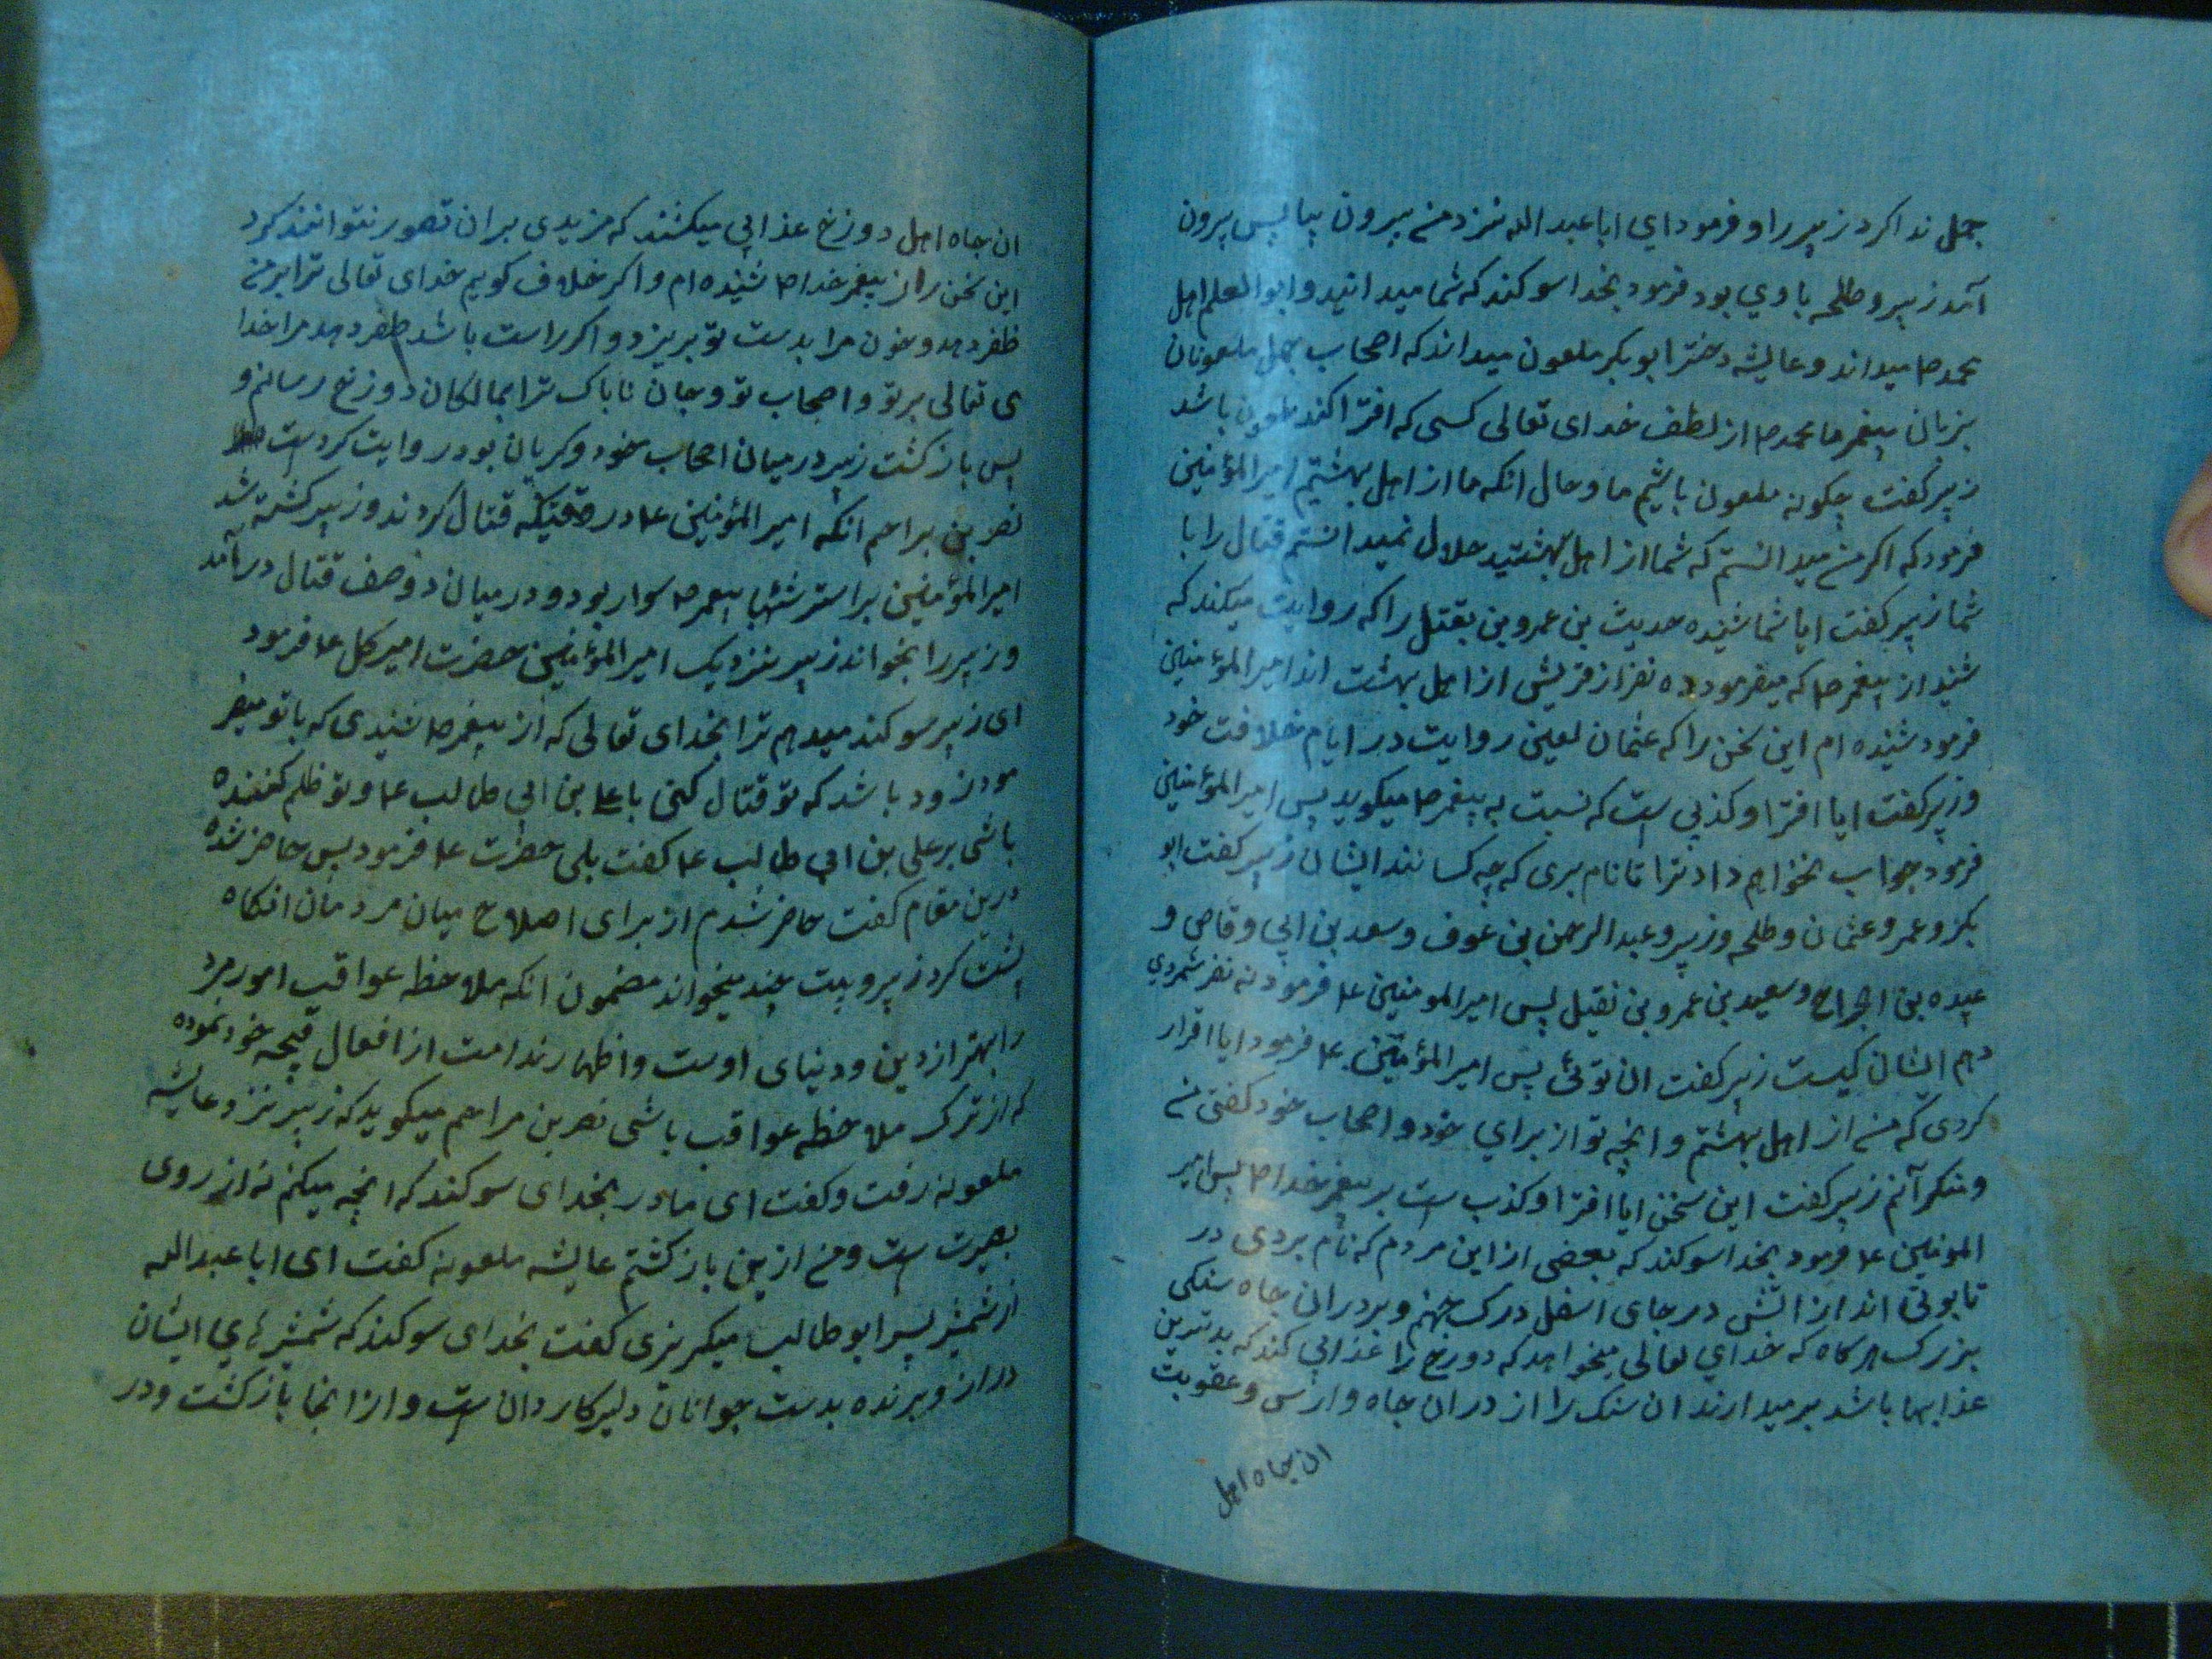 جمل ندا کرد زبیر را و فرمود ای ابا عبدالله نزد من بیرون بیا پس بیرون
آمد زبیر و طلحه با وی بود فرمود بخدا سوکند که شما میدانید و ابوالعلم اهل
محمد ص میداند و عایشه دختر ابوبکر ملعون میداند که اصحاب جمل ملعونان
بزبان پیغمر ما محمد ص از لطف خدای تعالی کسی که افترا کند ملعون باشد
زبیر کفت چکونه ملعون باشیم ما و حال انکه ما از اهل بهشتیم امیر المؤمنین
فرمود که اکر من میدانستم که شما از اهل بهشتید حلال نمیدانستم قتال را با
شما زبیر کفت ایا شما شنیده حدیث بن عمرو بن بقتل را که روایت میکند که
شنید از پیغمر ص که میفرمود ده نفر از قریش از اهل بهشت اند امیر المؤمنین
فرمود شنیده ام این سخن را که عثمان لعین روایت در ایام خلافت خود
و زبیر کفت ایا افترا و کذبی است که نسبت به پیغمر ص میکوید پس امیر المؤمنین
فرمود جواب نخواهم داد ترا تا نام بری که چه کسانند ایشان زبیر کفت ابو
بکر و عمر و عثمان و طلحه و زبیر و عبد الرحمن بن عوف و سعد بن ابی وقاص و
عبیده بن الجراح و سعید بن عمرو بن نقیل پس امیر المومنین ع فرمود نه نفر شمردی
دهم ایشان کیست زبیر کفت ان توئی پس امیر المؤمنین ع فرمود ایا اقرار
کردی که من از اهل بهشتم و انچه تو از برای خود و اصحاب خود کفتی من
و منکر آنم زبیر کفت این سخن ایا افترا و کذب است بر پیغمر خدا ص پس امیر
المومنین ع فرمود بخدا سوکند که بعضی از این مردم که نام بردی در
تابوتی اند از اتش در جای اسفل درک جهنم و بر در ان چاه سنکی
بزرک هر کاه که خدای تعالی میخواهد که دوزخ را عذابی کند که بدترین
عذابها باشد بر میدارند ان سنک را از در ان چاه و از س و عقوبت
ان چاه اهل
ان چاه اهل دوزخ عذابی میکشند که مزیدی بر ان تصور نتوانند کرد
این سخن را از پیغمر خدا ص شنیده ام و اکر خلاف کویم خدای تعالی ترا بر من
ظفر دهد و خون مرا بدست تو بریزد و اکر راست باشد ظفر دهد مرا خدا
ی تعالی بر تو و اصحاب تو و جان ناباک ترا بمالکان دوزخ رسانم و
پس باز کشت زبیر در میان اصحاب خود و کریان بود و روایت کردست
نصر بن مراحم انکه امیر المؤمنین ع در وقتیکه قتال کردند و زبیر کشته شد
امیر المؤمنین بر استر شهبا پیغمر ص سوار بود و در میان دو صف قتال در آمد
و زبیر را بخواند زبیر نزدیک امیر المؤمنین حضرت امیر کل ع فرمود
ای زبیر سوکند میدهم ترا بخدای تعالی که از پیغمر ص شنیدی که با تو میفر
مود زود باشد که تو قتال کنی با علی بن ابی طالب ع و تو ظلم کننده
باشی بر علی بن ابی طالب ع کفت بلی حضرت ع فرمود پس حاضر شده
درین مقام کفت حاضر شدم از برای اصلاح میان مردمان انکاه
پشت کرد زبیر و بیت چند میخواند مضمون انکه ملاحظه عواقب امور مرد
را بهتر از دین و دنیای اوست و اظهار ندامت از افعال قبیحه خود نموده
که از ترک ملاحظه عواقب باشی نصر بن مراحم میکوید که زبیر نزد عایشه
ملعونه رفت و کفت ای مادر بخدای سوکند که انچه میکنم نه از روی
بصیرت است و من از ین باز کشتم عایشه ملعونه کفت ای ابا عبدالله
از شمشیر پسر ابو طالب میکریزی کفت بخدای سوکند که شمشیر های ایشان
دراز و برنده بدست جوانان دلیر کاردان است و از انجا باز کشت و در